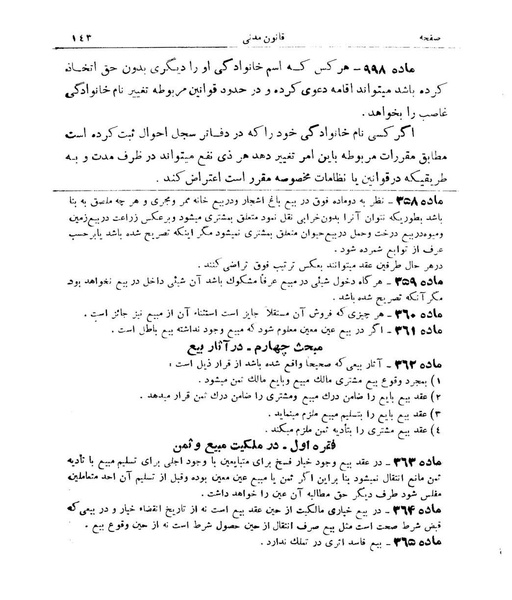 صفحه قانون مدنی ۱۴۳
ماده ۹۹۸ - هر کس که اسم خانوادگی او را دیگری بدون حق اتخاذ
کرده باشد میتواند اقامه دعوی کرده و در حدود قوانین مربوطه تغییر نام خانوادگی
غاصب را بخواهد .
اگر کسی نام خانوادگی خود را که در دفاتر سجل احوال ثبت کرده است
مطابق مقررات مربوطه باین امر تغییر دهد هر ذی نفع میتواند در ظرف مدت و به
طریقیکه در قوانین یا نظامات مخصوصه مقرر است اعتراض کند .
ماده ۳۵۸ - نظر به دوماده فوق در بیع باغ اشجار و دربیع خانه ممر و مجری و هر چه ملصق به بنا
باشد بطوریکه نتوان آنرا بدون خرابی نقل نمود متعلق بمشتری میشود و برعکس زراعت در بیع زمین
و میوه در بیع درخت و حمل در بیع حیوان متعلق بمشتری نمیشود مگر اینکه تصریح شده باشد یا برحسب
عرف از توابع شمرده شود .
در هر حال طرفین عقد میتوانند بعکس ترتیب فوق تراضی کنند .
ماده ۳۵۹ - هر گاه دخول شیئی در مبیع عرفاً مشکوک باشد آن شیئی داخل در بیع نخواهد بود
مگر آنکه تصریح شده باشد .
ماده ۳۶۰ - هر چیزی که فروش آن مستقلاً جایز است استثناء آن از مبیع نیز جائز است .
ماده ۳۶۱ - اگر در بیع عین معین معلوم شود که مبیع وجود نداشته بیع باطل است .
مبحث چهارم - در آثار بیع
ماده ۳۶۲ - آثار بیعی که صحیحاً واقع شده باشد از قرار ذیل است :
۱) بمجرد وقوع بیع مشتری مالک مبیع وبایع مالک ثمن میشود .
۲) عقد بیع بایع را ضامن درک مبیع ومشتری را ضامن درک ثمن قرار میدهد .
۳) عقد بیع بایع را بتسلیم مبیع ملزم مینماید .
۴) عقد بیع مشتری را بتأدیه ثمن ملزم میکند .
فقره اول - در ملکیت مبیع و ثمن
ماده ۳۶۳ - در عقد بیع وجود خیار فسخ برای متبایعین یا وجود اجلی برای تسلیم مبیع یا تأدیه
ثمن مانع انتقال نمیشود بنا براین اگر ثمن یا مبیع عین معین بوده وقبل از تسلیم آن احد متعاملین
مفلس شود طرف دیگر حق مطالبه آن عین را خواهد داشت .
ماده ۳۶۴ - در بیع خیاری مالکیت از حین عقد بیع است نه از تاریخ انقضاء خیار و در بیعی که
قبض شرط صحت است مثل بیع صرف انتقال از حین حصول شرط است نه از حین وقوع بیع .
ماده ۳۶۵ - بیع فاسد اثری در تملک ندارد .